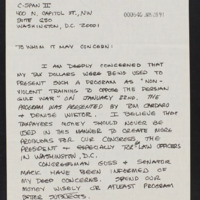 C-SPAN II
400 N. CAPITOL ST., NW
SUITE 650
WASHINGTON, D.C. 20001
TO WHOM IT MAY CONCERN:
I AM DEEPLY CONCERNED THAT
MY TAX DOLLARS WERE BEING USED TO
PRESENT SUCH A PROGRAM AS "NON-
VIOLENT TRAINING TO OPPOSE THE PERSIAN
GULF WAR" ON JANUARY 22ND. THE
PROGRAM WAS PRESENTED BY TOM
& DENISE I BELIEVE THAT
TAXPAYERS MONEY SHOULD NEVER BE
USED IN THIS MANNER TO CREATE MORE
PROBLEMS FOR OUR CONGRESS, THE
PRESIDENT & ESPECIALLY THE LAW OFFICERS
IN WASHINGTON, D.C.
CONGRESSMAN GOSS & SENATOR
MACK HAVE BEEN INFORMED OF
MY DEEP CONCERNS. SPEND OUR
MONEY WISELY OR ATLEAST PROGRAM
AFTER INTERESTS.